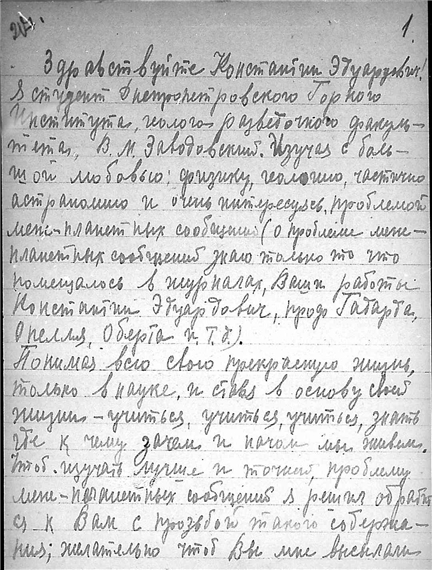 1.
Здравствуйте Константин Эдуардевич!
Я студент Днепропетровского Горного
Института, геолого разведочного факуль-
тета, В. М. Заводовский. Изучая с боль-
шой любовью: физику, геологию, частично
астраномию и очень интересуясь, проблемой
меж-планетных сообщений (о проблеме меж-
планетных сообщений знаю только то что
помещалось в журналах, Ваши работы
Константин Эдуардович, проф Гадарта,
Опелля, Оберта и т.д.).
Понимая всю свою прекрасную жизнь,
только в науке, и ставя в основу своей
жизни – учиться, учиться, учиться, знать
где к чему зачем и начом мы живем.
Чтоб изучать лучше и точней, проблему
меж-паланетных сообщений я решил обратит
ся к Вам с прозьбой такого содержа-
ния; желательно чтоб Вы мне высылали